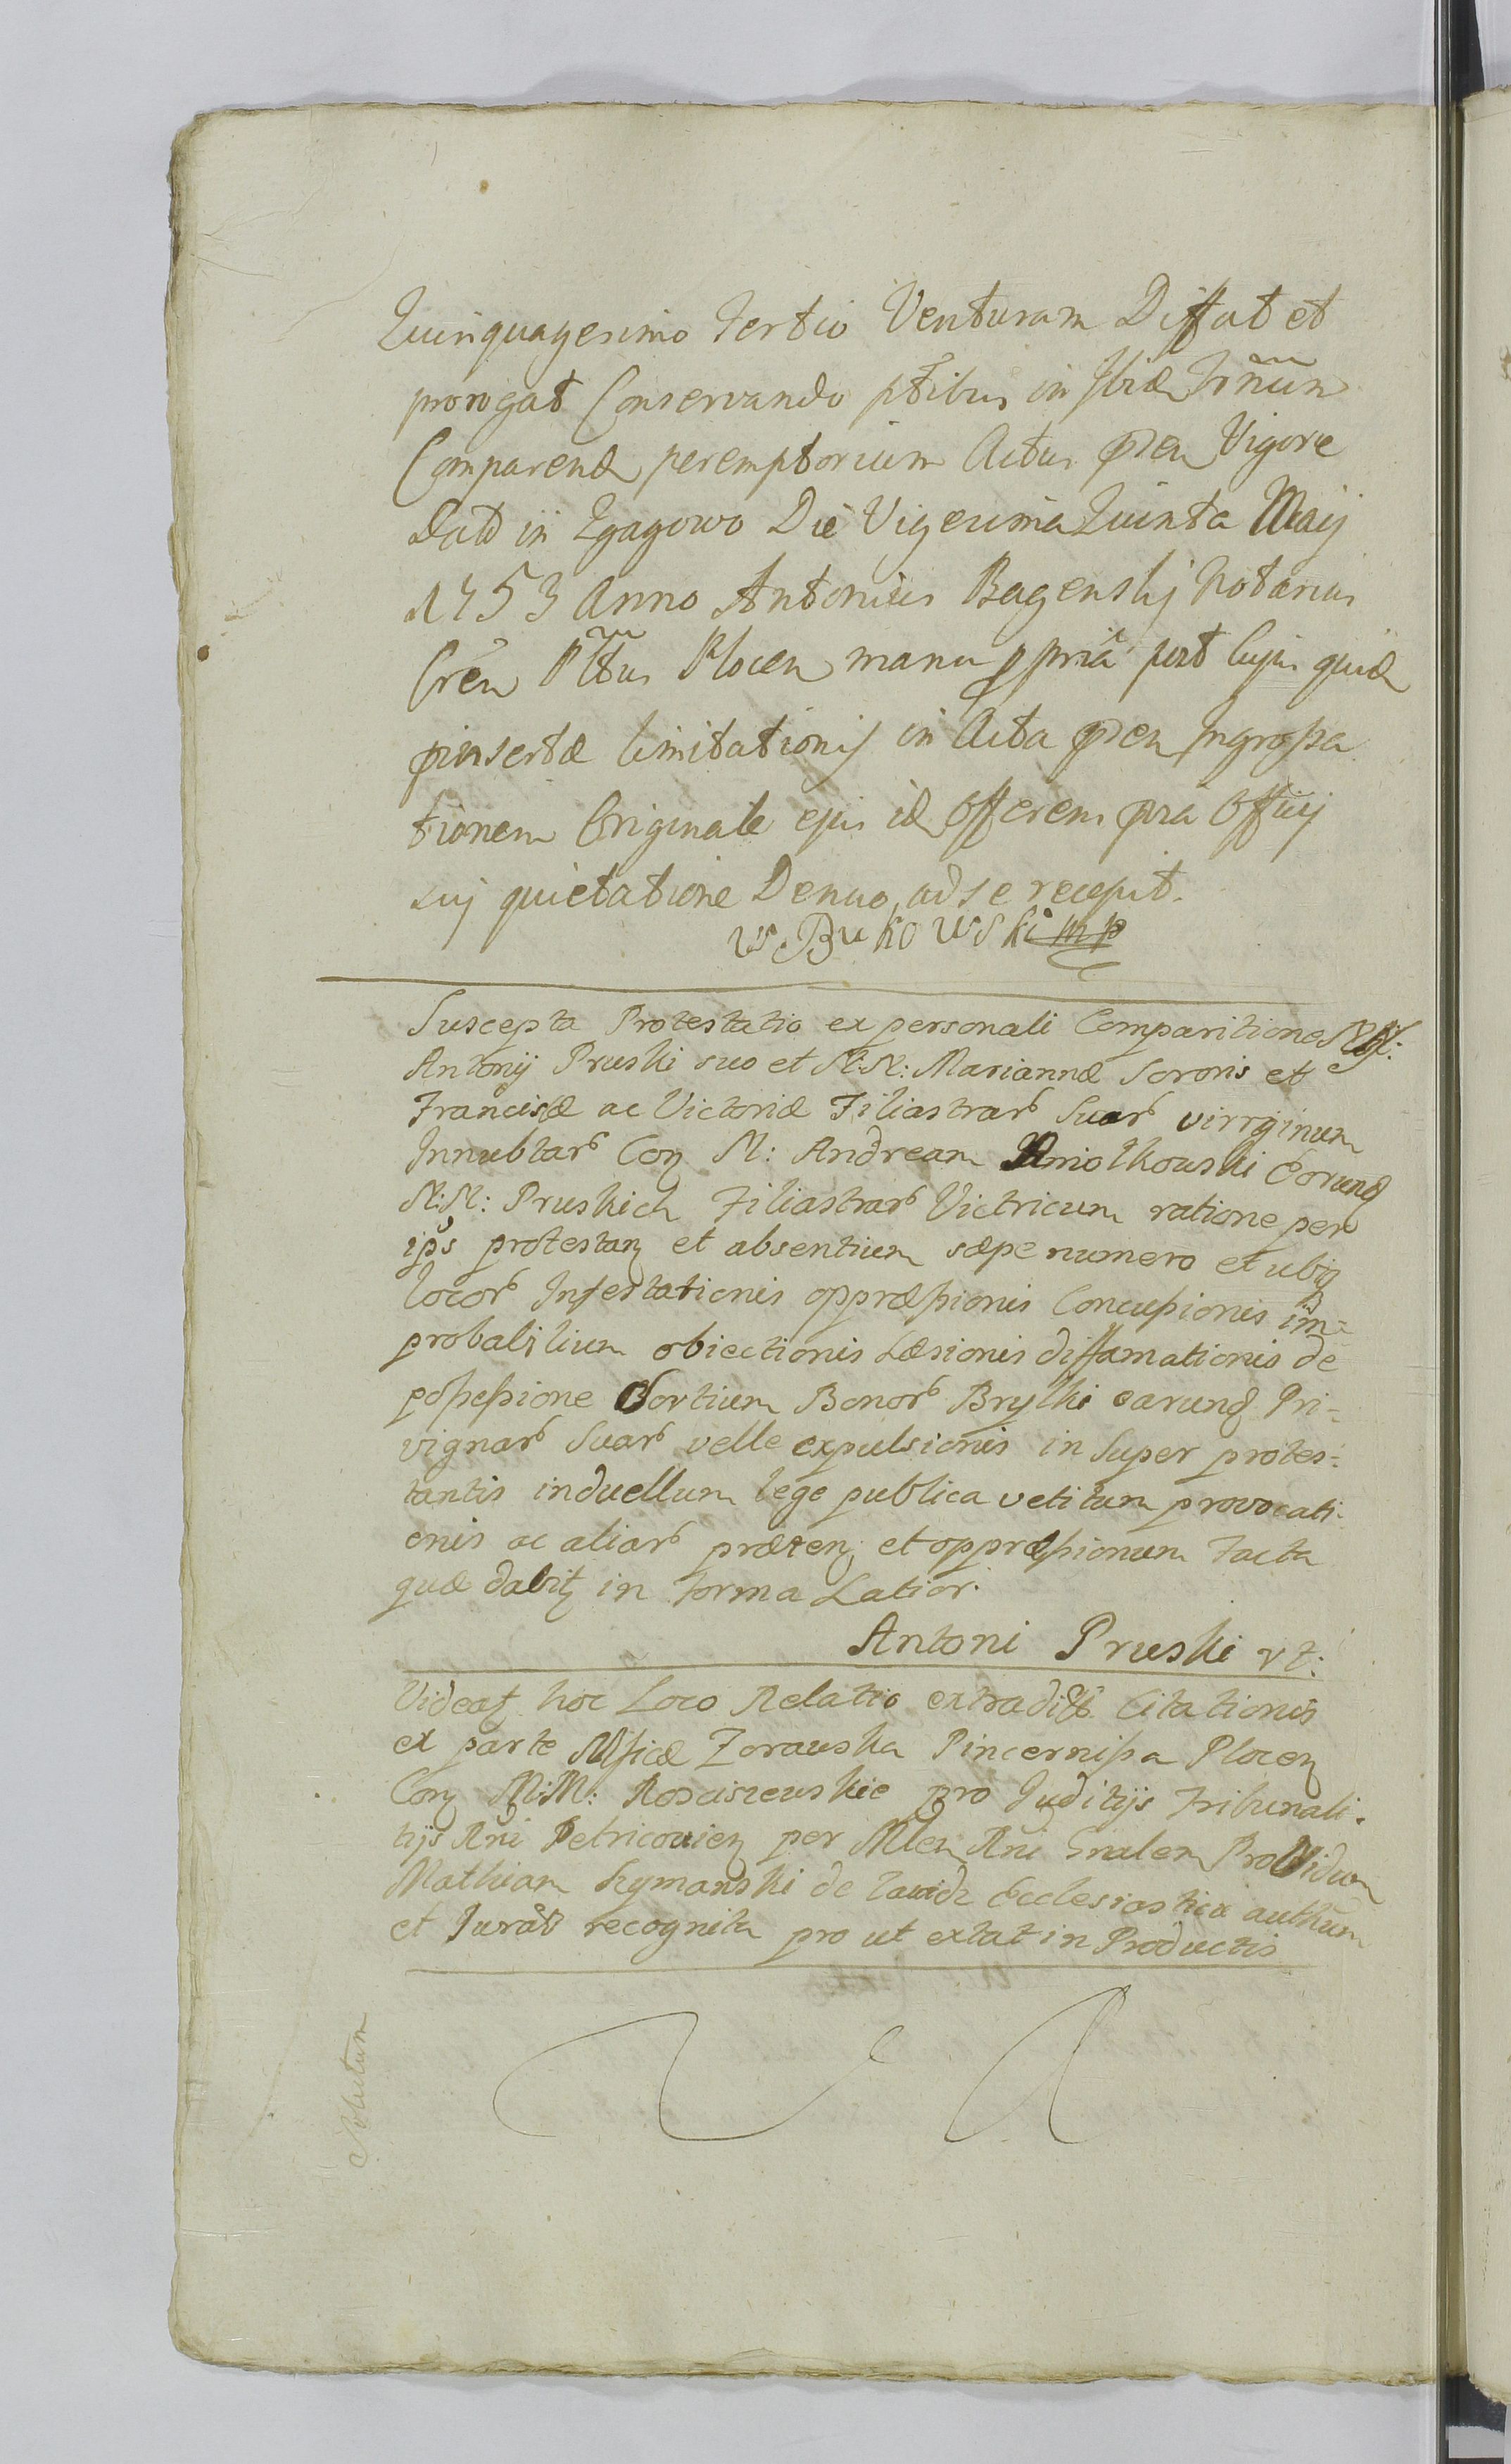 Quinquagesimo Tertio Venturam Differt et
prorogat Conservando ptibus in Ibid Trñum
Comparend peremptorium Actus pñen Vigore
Datt in Zgagowo Die Vigesima Quinta Maij
1753 Anno Antonius Bagenskj Notarius
Cren Pltus Plocen manu ppria pst Cujus quid
pinsertæ limitationis in Acta pñen Ingrossa
tionem Originale ejus id Offerens pñia Officij
suj quietatione Denuo ad se recepit.
W. Bukowski mp
Suscepta Protestatio ex personali Comparitione
Antonij Pruski suo et N:N: Mariannæ Sororis et
Franciscæ ac Victoriæ Filiastrar Suar virrginum
Innubtar Con N: Andream Amiolkowski Eorund
N:N: Pruskich Filiastrar Victricum ratione per
ips protestan et absentium sæpe numero et ubiq
locor Infestationis oppræssionis Concussionis im=
probabilium obiectionis Læsionis diffamationis de
possessione Sortium Bonor Brylki earund Pri=
vignar Suar velle expulsionis in Super protes=
tantis induellum lege publica vetitum provocati
onis ac aliar præten et oppræssionum Facta
quæ dabit in forma Latior.
Antoni Pruski
Videat hoc Loco Relatio extradit Citationis
ex parte Mficæ Zorawska Pincernissa Plocen
Con M:M: Rosciszewskie pro Juditijs Tribunali=
tijs Rni Petricovien per Mlen Rni Gnalem Providum
Mathiam Szymanski de Ecclesiastica authum
et Jurat recognita pro ut extat in Productis
Solutum